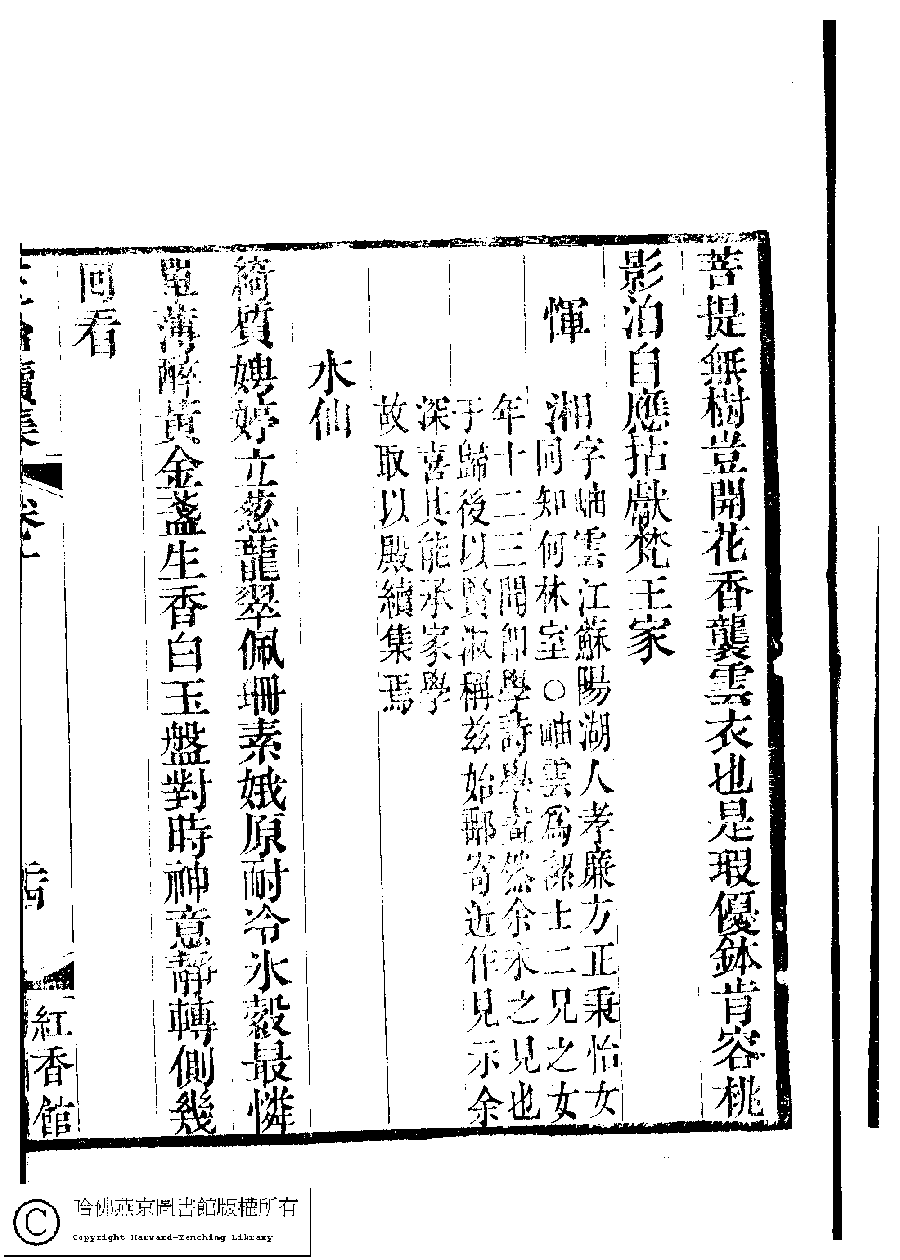 菩提無樹豈開花香襲雲衣也是瑕優鉢肯容桃
影泊自應拈獻梵王家
惲湘
字岫雲江蘇陽湖人孝廉方正秉怡女
同知何林室○岫雲爲潔士二兄之女
年十二三間卽學詩學畫然余未之見也
于歸後以賢淑稱兹始郵寄近作見示余
深喜其能承家學
故取以殿續集焉
水仙
綺質娉婷立葱蘢翠佩珊素娥原耐冷氷縠最憐
寬薄醉黄金盞生香白玉盤對時神意靜轉側幾
囘看
續集
卷十
紅香館
哈佛燕京圖書館版權所有
Copyright Harvard-Yenching Library